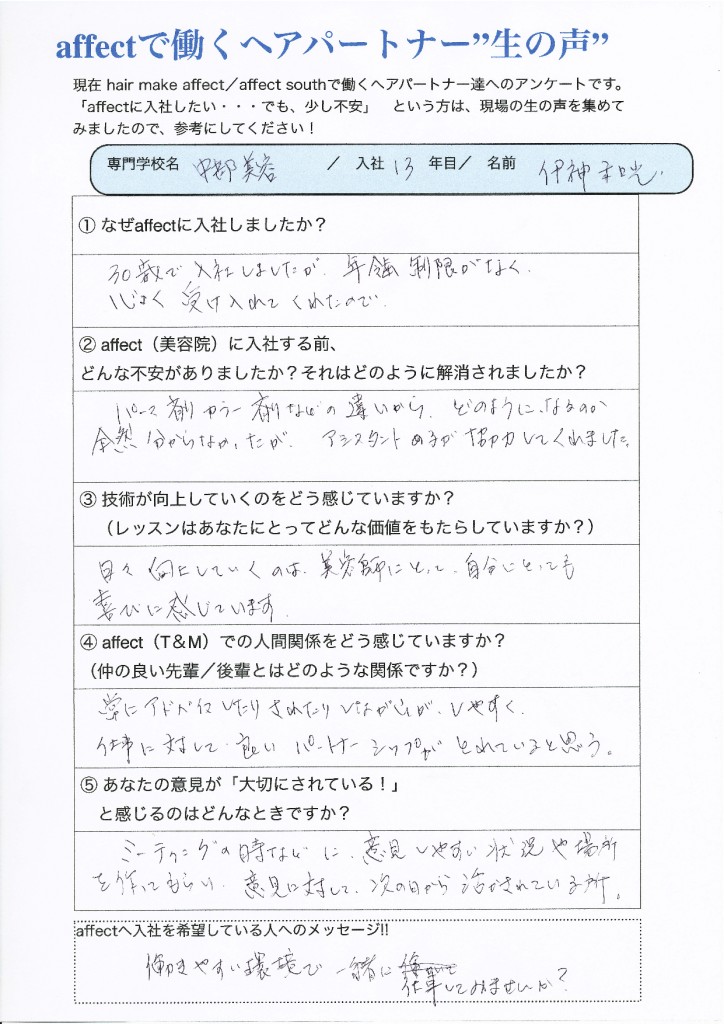 affectで働くヘアパートナー”生の声”
現在 hair make affect／affect southで働くヘアパートナー達へのアンケートです。
「affectに入社したい・・・でも、少し不安」　という方は、現場の生の声を集めて
みましたので、参考にしてください！
専門学校名 中部美容 ／ 入社 13 年目／ 名前 伊神
① なぜaffectに入社しましたか？
30歳で入社しましたが、年令制限がなく、
心よく受け入れてくれたので。
② affect（美容院）に入社する前、
どんな不安がありましたか？それはどのように解消されましたか？
パーマ剤カラー剤などの違いから、どのようになるのか
全然分からなかったが、アシスタントの子が協力してくれました。
③ 技術が向上していくのをどう感じていますか？
（レッスンはあなたにとってどんな価値をもたらしていますか？）
日々向上していくのは、美容師にとって、自分にとっても
喜びに感じています。
④ affect（T＆M）での人間関係をどう感じていますか？
（仲の良い先輩／後輩とはどのような関係ですか？）
常にアドバイスしたりされたりしながら しやすく、
仕事に対して良いパートナーシップがとれていると思う。
⑤ あなたの意見が「大切にされている！」
と感じるのはどんなときですか？
ミーティングの時などに、意見しやすい状況や場所
を作ってもらい、意見に対して、次の日から活かされている所。
affectへ入社を希望している人へのメッセージ!!
働きやすい環境で一緒に
仕事してみませんか？